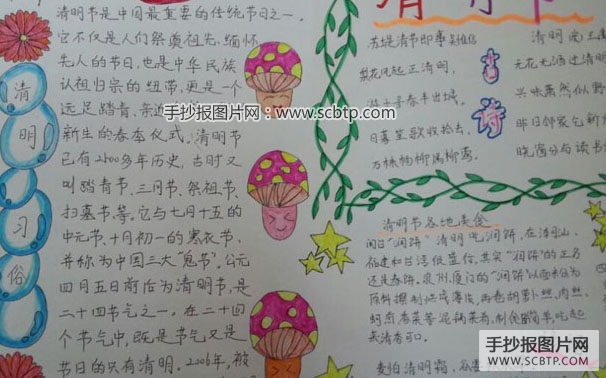 清明节
清
明
习
俗
清明节是中国最重要的传统节日之一。
它不仅是人们祭奠祖先、缅怀
先人的节日,也是中华民族
认祖归宗的纽带,更是一个
远足踏青、亲近
新生的春季仪式。清明节
已有2500多年历史,古时又
叫踏青节、三月节、祭祖节、
扫墓节等。它与七月十五的
中元节、十月初一的寒衣节,
并称为中国三大“鬼节”。公元
四月五日前后为清明节,是
二十四节气之一。在二十四
个节气中,既是节气又是
节日的只有清明。2006年,被
手抄报图片网:www.scbtp.com
苏堤清节即事 吴惟信
梨花风起正清明,
游子寻春半出城。
日暮笙歌收拾去,
万株杨柳属流莺。
古
诗
清明
无花无酒过清明
兴味萧然似野
昨日邻家乞新
晓窗分与读书
清明节各地美食
闽台“润饼” 清明吃润饼,在
其实“润饼”的正名
还是春饼。泉州、厦门的“润饼”以面粉为
原料 胡萝卜丝、肉丝、
香菜等
来清香可口。
清明霜
手抄报图片网
SCBTP.COM